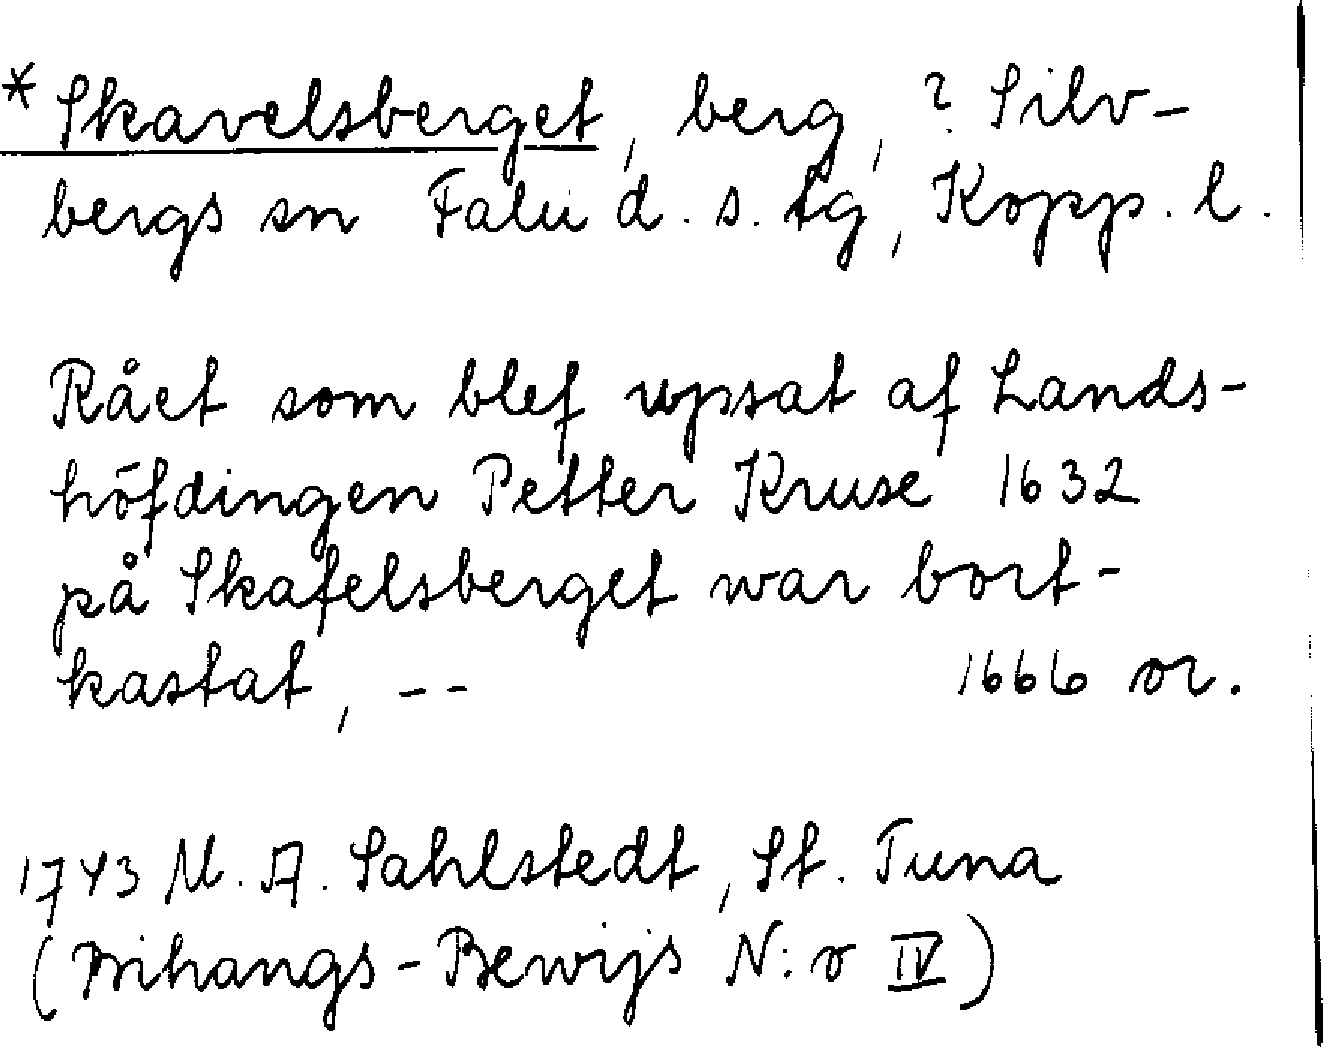 * Skavelsberget, berg, ? Silv-
bergs sn Falu d. s. tg, Kopp. l.
Rået som blef upsat af Lands-
höfdingen Petter Kruse 1632
på Skafelsberget war bort-
kastat, -- 1666 or.
1743 M. A. Sahlstedt, St. Tuna
(Bihangs-Bewijs N:o IV)